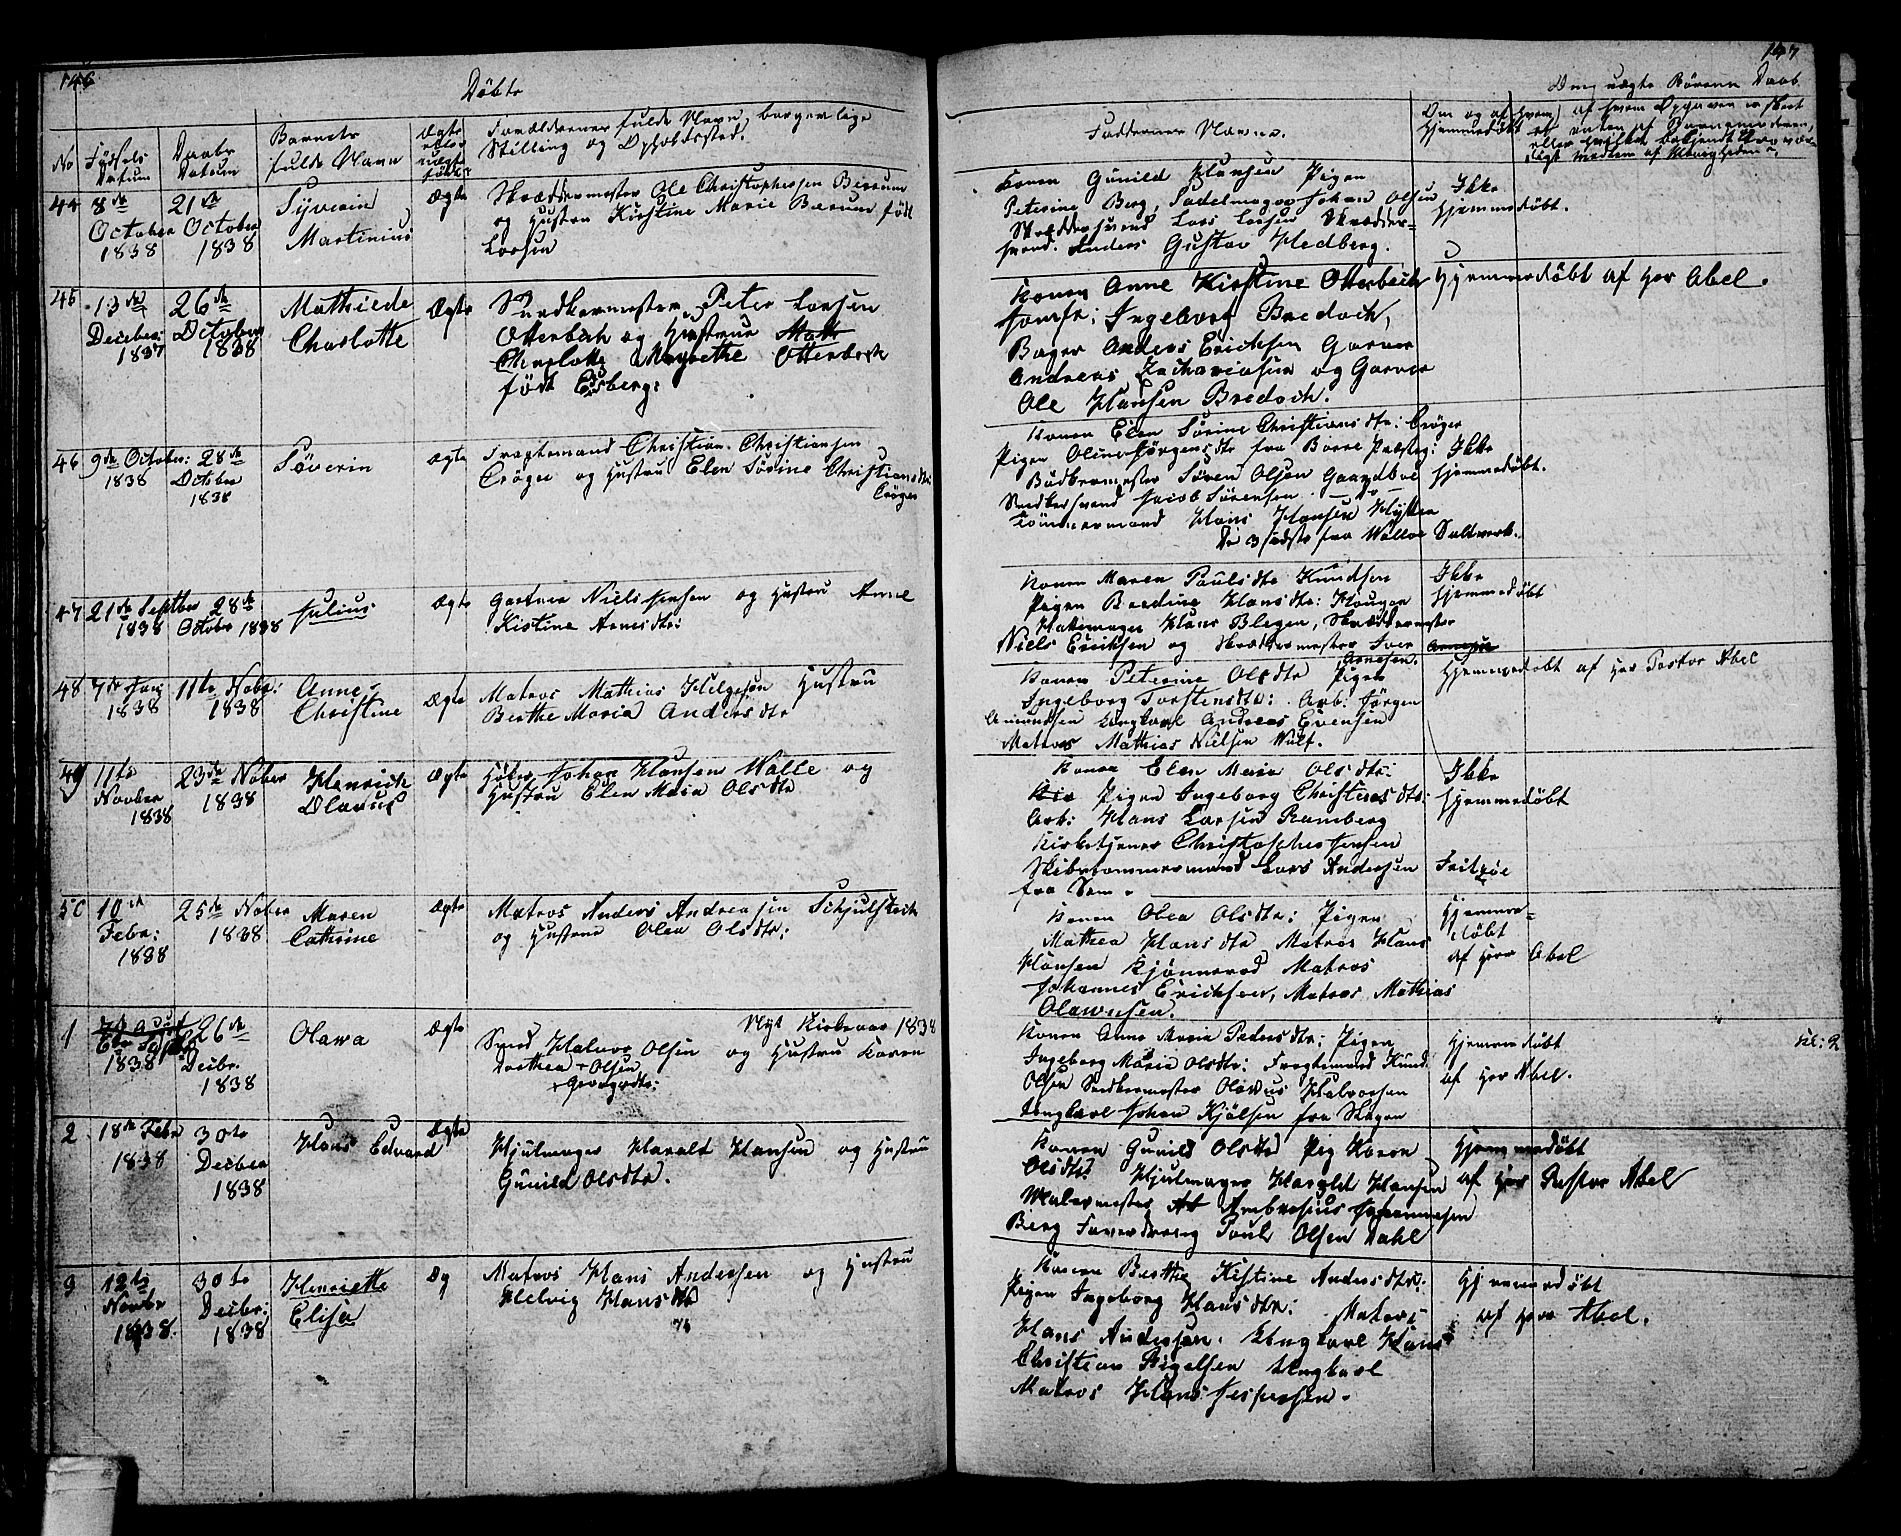 146
Døbte
No
Fødsels Datum
Daabs Datum
Barnets fulde Navn
Ægte eller uægte født
Forældrenes fulde Navn, borgerlige
Stilling og Opholdssted.
44
8de October 1838
21de October 1838
Syverin Martinius
Ægte
Skræddermester Ole Christophersen Bærum
og Hustru Kirstine Marie Bærum født
Larsen
45
13de Decber: 1837
26de October 1838
Mathiede Charlotte
Ægte
Snedkermester Peter Larsen
Otterbeck og Hustrue
Charlotte Margrethe Otterbeck
født Esberg:
46
9de October: 1838
28de October 1838
Söverin
Ægte
Fragtemand Christian Christiansen
Cröger og Hustru Elen Sörine Christiansdtr:
Cröger
47
21de Septber 1838
28de Octobr 1838
Julius
Ægte
Gartner Niels Jensen og Hustru Anne
Kistine Arnesdtr:
48
7de Jan 1838
11te Nobr: 1838
Anne Christine
Ægte
Matros Mathias Helgesen Hustru
Berthe Maria Andersdtr
49
11te Novber 1838
23de Nober 1838
Henrick Olavus
Ægte
Høker Johan Hansen Walle og
Hustru Elen Maria Olsdtr
50
10de Febr: 1838
25de Nober 1838
Maren Cathrine
Ægte
Matros Anders Andreasen Schjulstück
og Hustrue Olea Olsdtr:
Nyt Kirkeaar 1838
1
1838
26de Decbr. 1838
Olawa
Ægte
Smed Halvor Olsen og Hustru Karen
Dorthea + Olsen
+ Georgsdtr:
2
18de Febr 1838
30te Decber 1838
Hans Edvard
Ægte
Hjulmager Harald Hansen og Hustru
Gunild Olsdtr.
3
12te Novbr 1838.
30te Decbr: 1838
Henriette Elisa
Æg
Matros Hans Andersen og Hustru
Helvig Hansdtr
147
Faddernes Navne.
Om og af hvem hjemmedøbt
Ved uægte Børens Daab
af hvem Opgaven er skeet
Konen Gunild Hansen Pigen
Petrine Berg, Sadelmager Johan Olsen
Skræddersvend Lars Larsen Skrædder-
svend. Anders Gustav Hedberg.
Ikke
hjemmedøbt.
Konen Anne Kirstine Otterbech
Jomfr: Ingeborg Bredoch,
Bager Anders Erichsen Garver
Andreas Zachariasen og Garver
Ole Hansen Bredoch.
Hjemmedöbt af Her Abel.
Konen Elen Sörine Christiansdtr: Cröger
Pigen Oline Jörgensdtr fra Borre Præsteg:
Bödkermester Sören Olsen Gaasholt
Snedkersvend Jacob Sörensen — " —
Tömmermand Hans Hansen Hytten
De 3 sidste fra Walloe Saltverk.
Ikke
hjemmedöbt.
Konen Maren Paulsdtr Knudsen
Pigen Bredine Hansdtr: Haugan
Hattemager Hans Blegen, Skræddermester
Niels Ericksen og Skræddermester Iver
Arnesen.
Ikke
hjemmedöbt
Konen Peterine Olsdtr Pigen
Ingeborg Torstensdtr: Arb: Jörgen
Amundsen Ungkarl Andreas Evensen
Matros Mathias Nielsen Wulf.
Hjemmedöbt af Her Pastor Abel
Konen Elen Maria Olsdtr:
Pigen Ingeborg Christensdtr:
Arb: Hans Larsen Ramberg
Kirketjener Christopher Jensen
Skibstømmermand Lars Andersen Fritzöe
fra Sem.
Ikke
hjemmedöbt
Konen Olea Olsdtr: Pigen
Mathea Hansdtr Matros Hans
Hansen Kjönneröd Matros
Johannes Ericksen, Matros Mathias
Olawesen.
Hjemme-
döbt
af Herr Abel
Konen Anne Maria Pedersdtr: Pigen
Ingeborg Maria Olsdtr: Fragtemand Knud
Olsen Snedkermester Olavus Halvorsen
Ungkarl Johan Kjölsen fra Skogen
Hjemmedöbt
af Her Abel.
Konen Gunild Olsdtr Pig Karen
Olsdtr: Hjulmager Harald Hansen
Malermester Ambrosius Johannesen
Berg Farverdreng Poul Olsen Dahl
Hjemmedöbt
af Her Pastor Abel
Konen Berthe Kistine Andersdtr:
Pigen Ingeborg Hansdtr: Matros
Hans Andersen. Ungkarl Hans
Christian Bögelsen Ungkarl
Matros Hans Jespersen.
Hjemmedöbt
af Herr Abel.